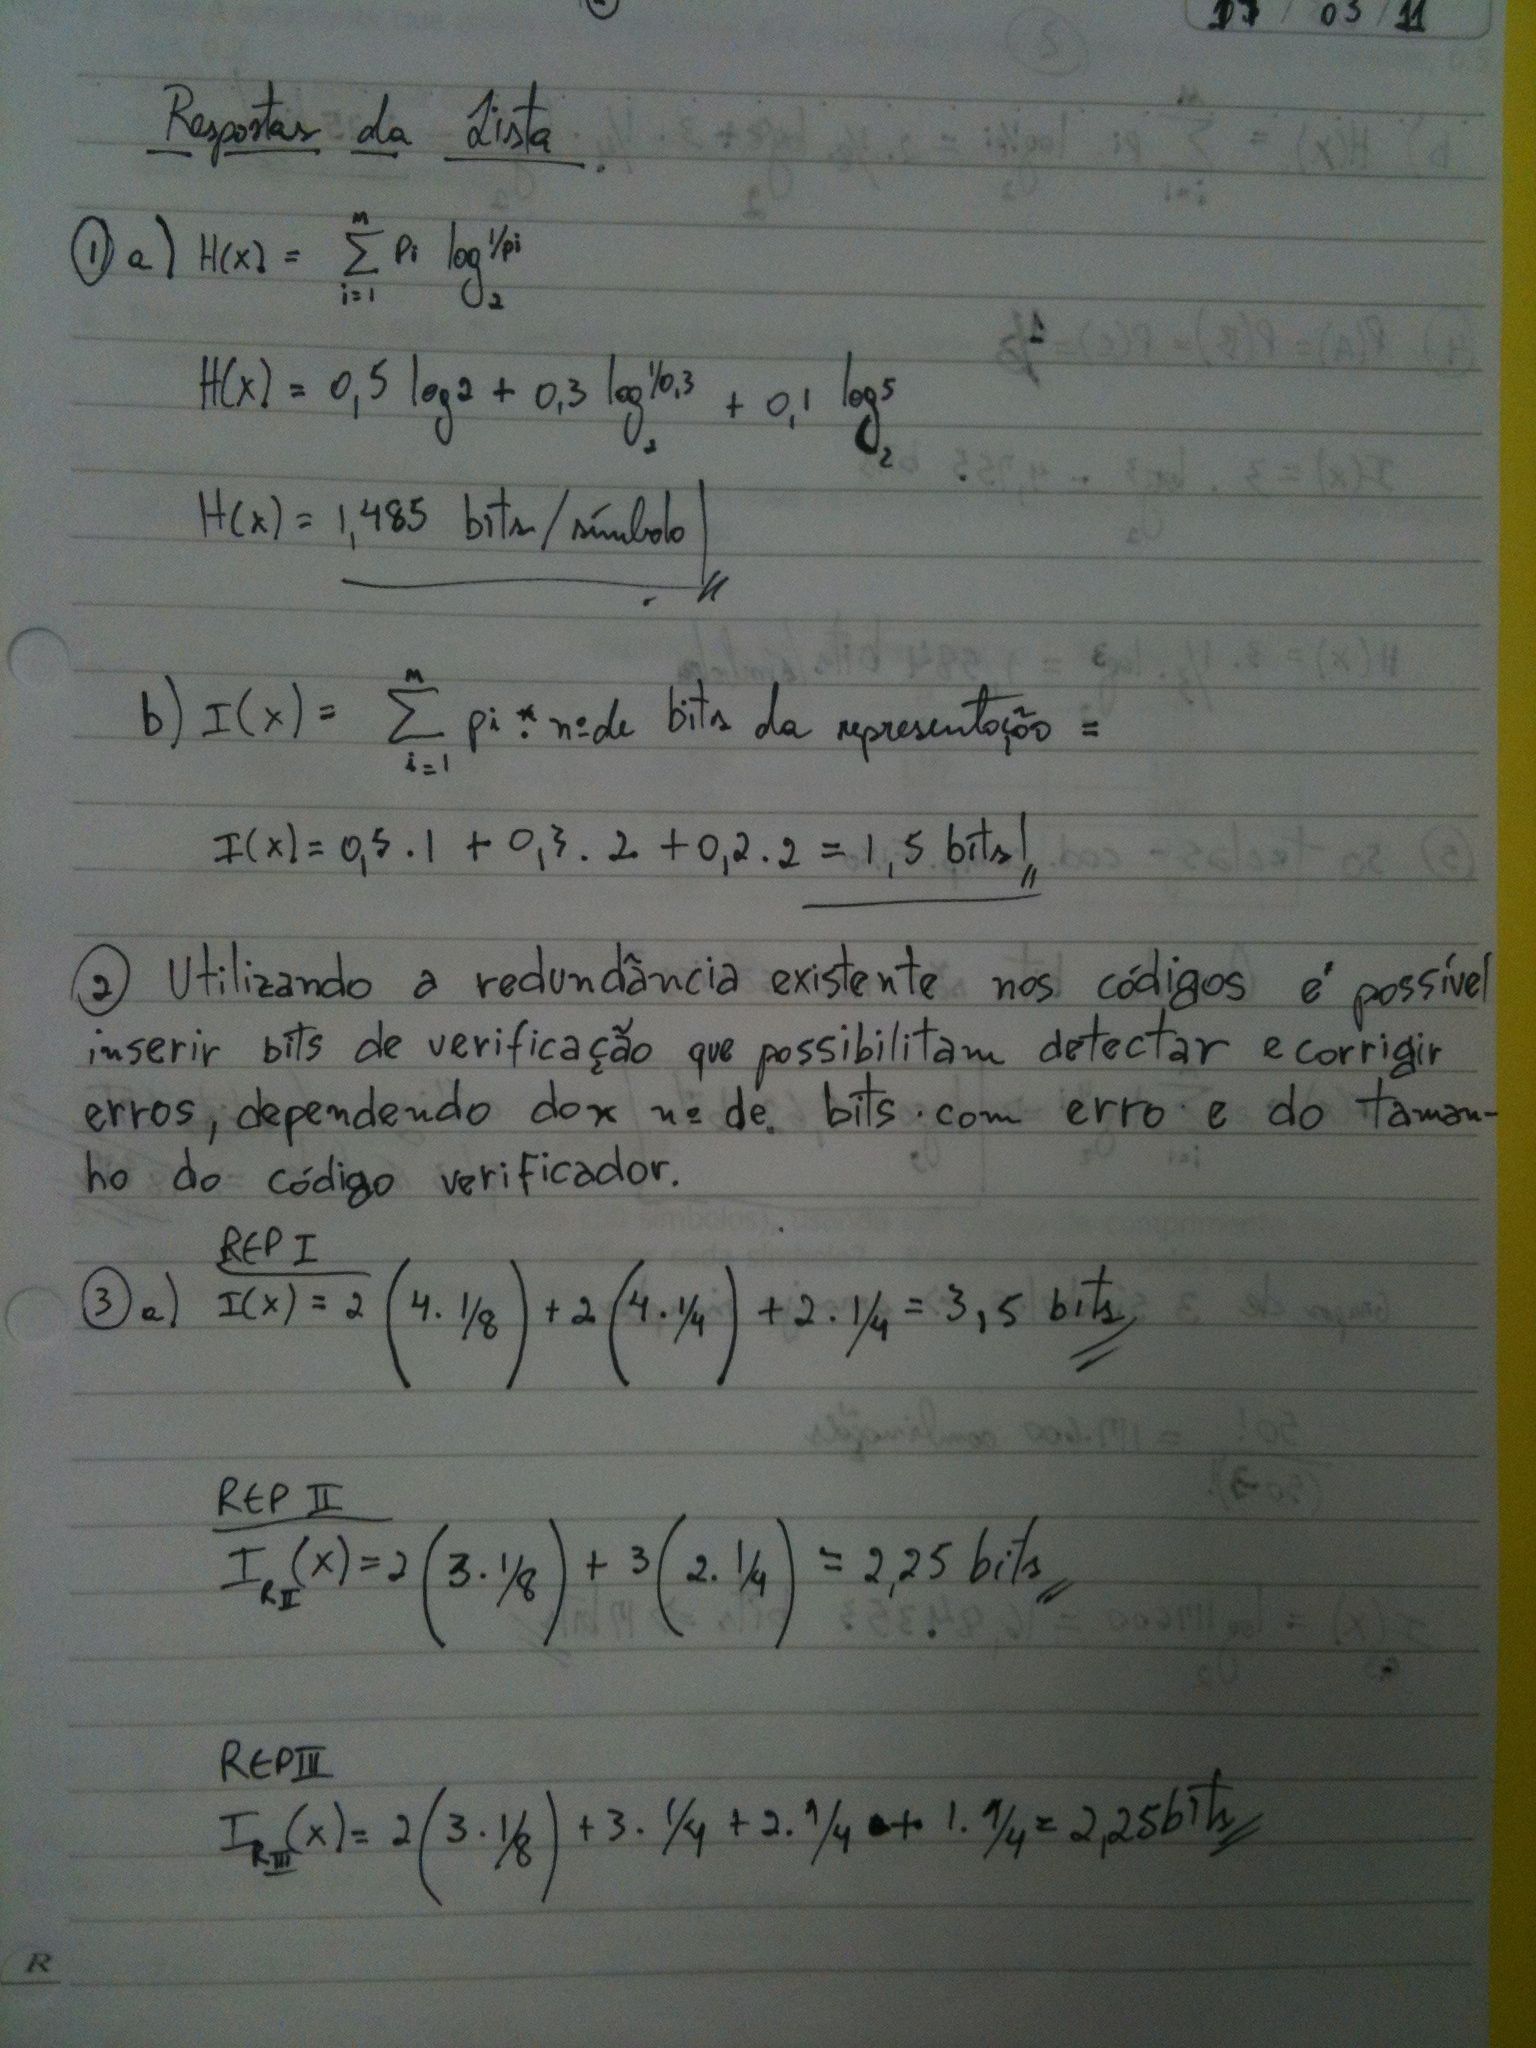 17 / 03 / 11
Respostas da Lista.
① a) H(x) = Σ_{i=1}^{m} Pi log_2^{1/pi}
H(x) = 0,5 log 2 + 0,3 log_2^{1/0,3} + 0,1 log_2^5
H(x) = 1,485 bits/símbolo
b) I(x) = Σ_{i=1}^{m} pi * nº de bits da representação =
I(x) = 0,5 . 1 + 0,3 . 2 + 0,2 . 2 = 1,5 bits
② Utilizando a redundância existente nos códigos é possível
inserir bits de verificação que possibilitam detectar e corrigir
erros, dependendo do nº de bits com erro e do taman-
ho do código verificador.
REP I
③ a) I(x) = 2 (4 . 1/8) + 2 (4 . 1/4) + 2 . 1/4 = 3,5 bits
REP II
I_{RII}(x) = 2 (3 . 1/8) + 3 (2 . 1/4) = 2,25 bits
REP III
I_{RIII}(x) = 2 (3 . 1/8) + 3 . 1/4 + 2 . 1/4 + 1 . 1/4 = 2,25 bits
R